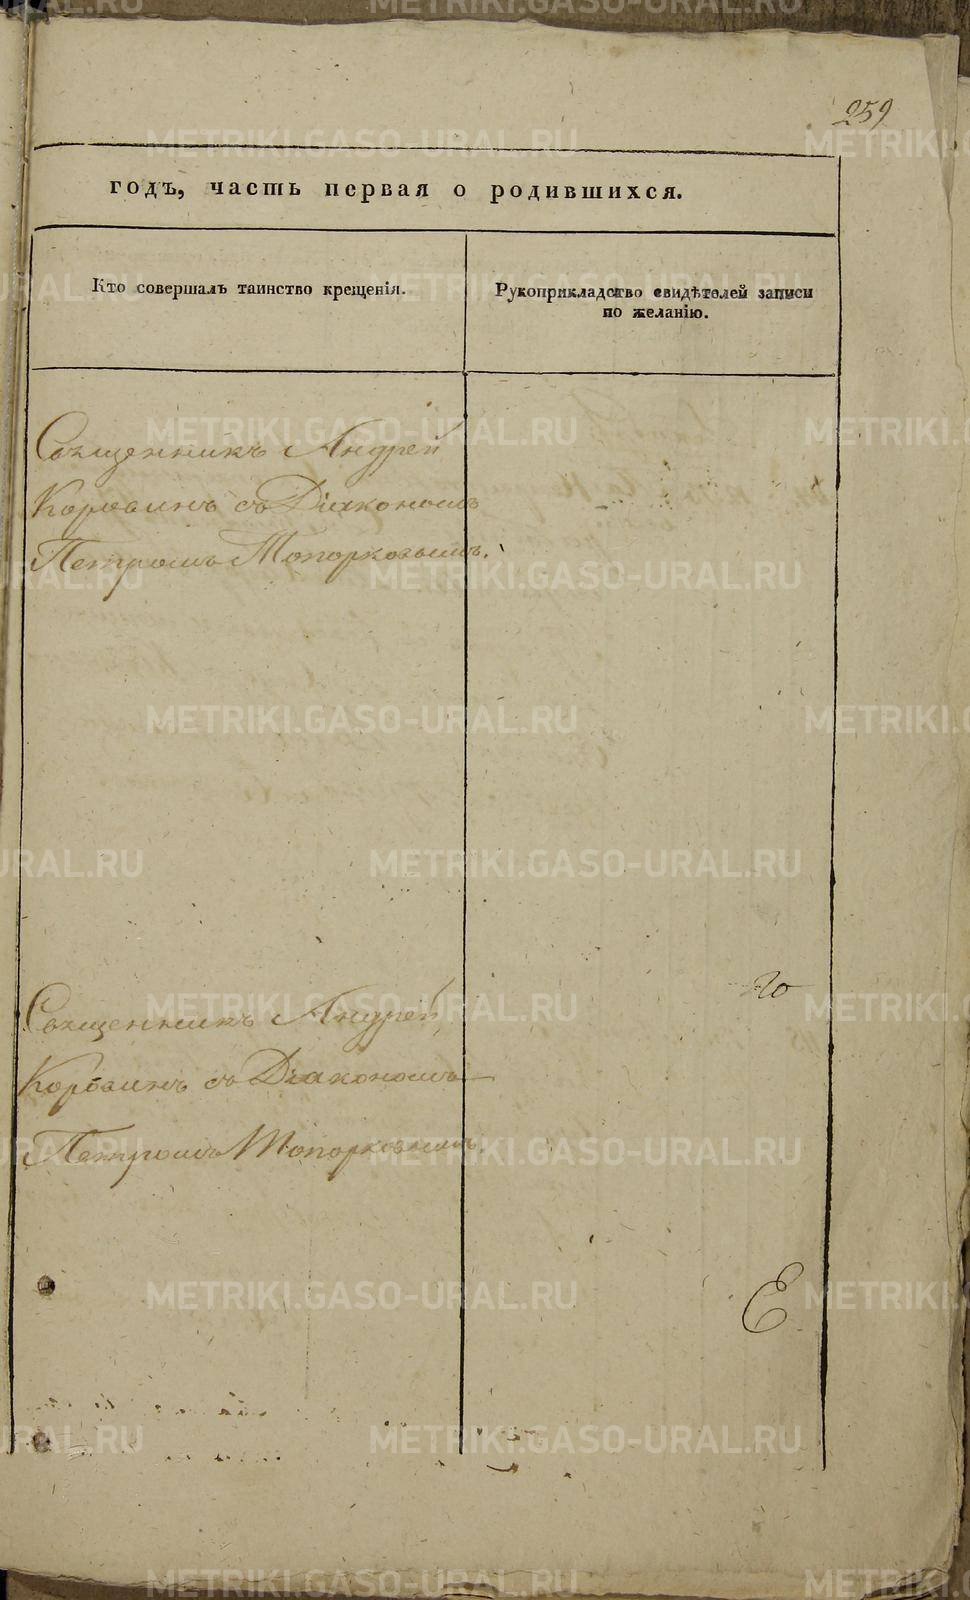 259
годъ, часть первая о родившихся.
Кто совершалъ таинство крещенія.
Рукоприкладство свидѣтелей записи
по желанію.
Священникъ Андрей
Корвинъ съ Діакономъ
Петромъ Топорковымъ.
Священникъ Андрей
Корвинъ съ Діакономъ
Петромъ Топорковымъ.
METRIKI.GASO-URAL.RU